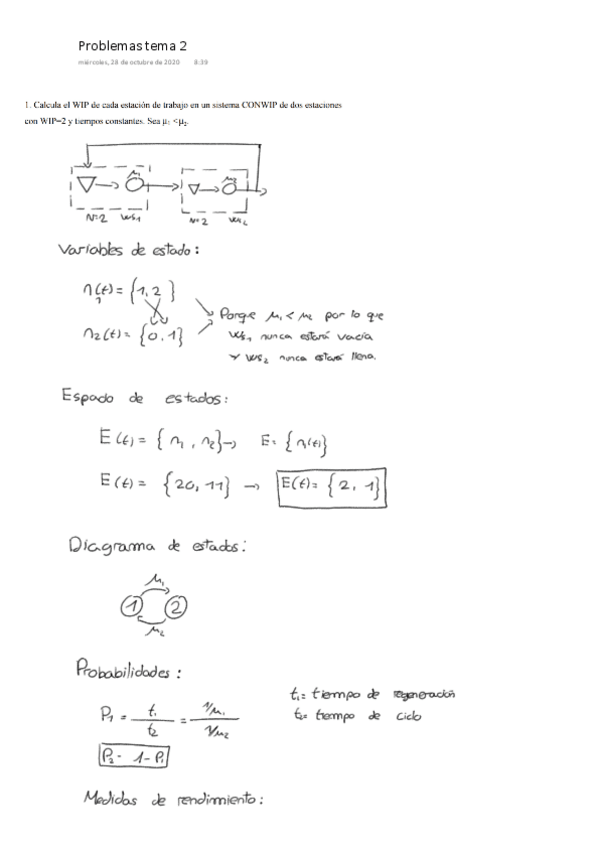 Problemas tema 2
miércoles, 28 de octubre de 2020 8:39
1. Calcula el WIP de cada estación de trabajo en un sistema CONWIP de dos estaciones
con WIP=2 y tiempos constantes. Sea μ₁ <μ₂.
μ₁ μ₂
N=2 WS₁ N=2 WS₂
Variables de estado:
n₁(t) = {1,2}
n₂(t) = {0,1}
Porque μ₁ < μ₂ por lo que
WS₁ nunca estará vacía
y WS₂ nunca estará llena.
Espacio de estados:
E(t) = {n₁, n₂} → E = {n₁(t)}
E(t) = {20, 11} → E(t) = {2, 1}
Diagrama de estados:
μ₁
1 2
μ₂
Probabilidades:
t₁ = tiempo de regeneración
t₂ = tiempo de ciclo
P₁ = t₁/t₂ = 1/μ₁ / 1/μ₂
P₂ = 1 - P₁
Medidas de rendimiento: